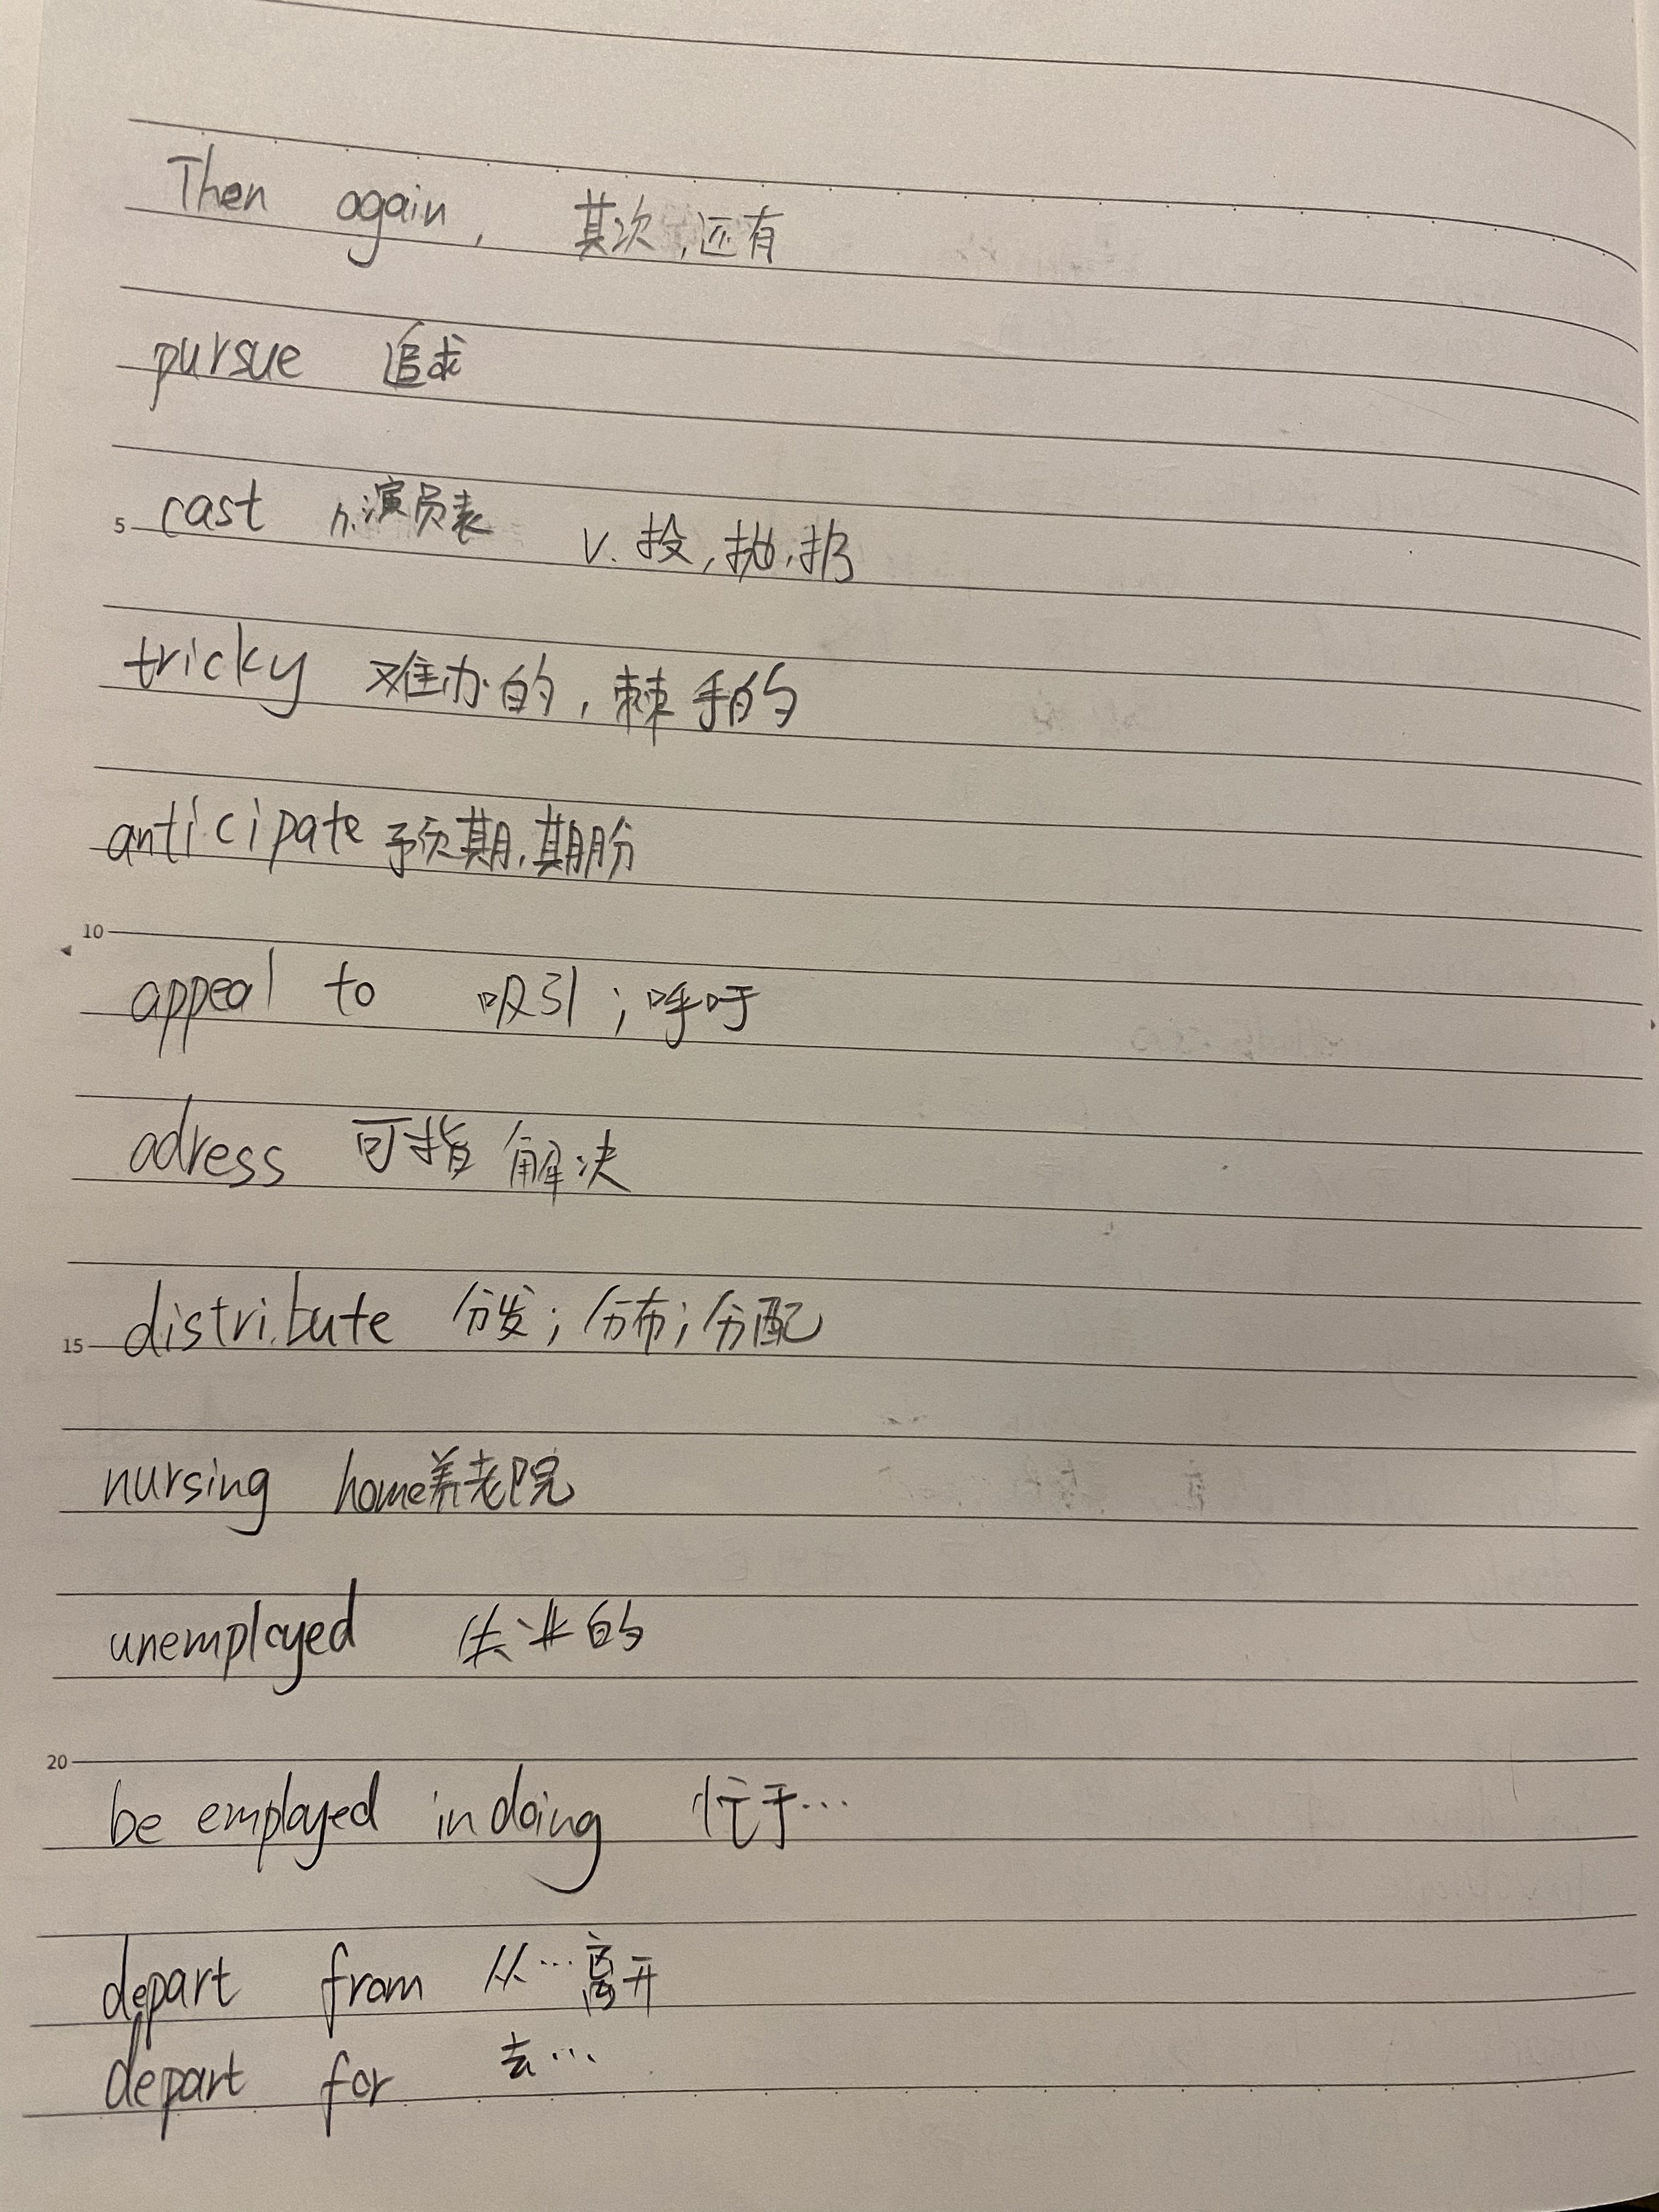 Then again, 其次,还有
pursue 追求
5 cast n.演员表 v.投,抛,扔
tricky 难办的,棘手的
anticipate 预期,期盼
10
appeal to 吸引;呼吁
adress 可指 解决
15 distribute 分发;分布;分配
nursing home养老院
unemployed 失业的
20
be employed in doing 忙于…
depart from 从…离开
depart for 去…